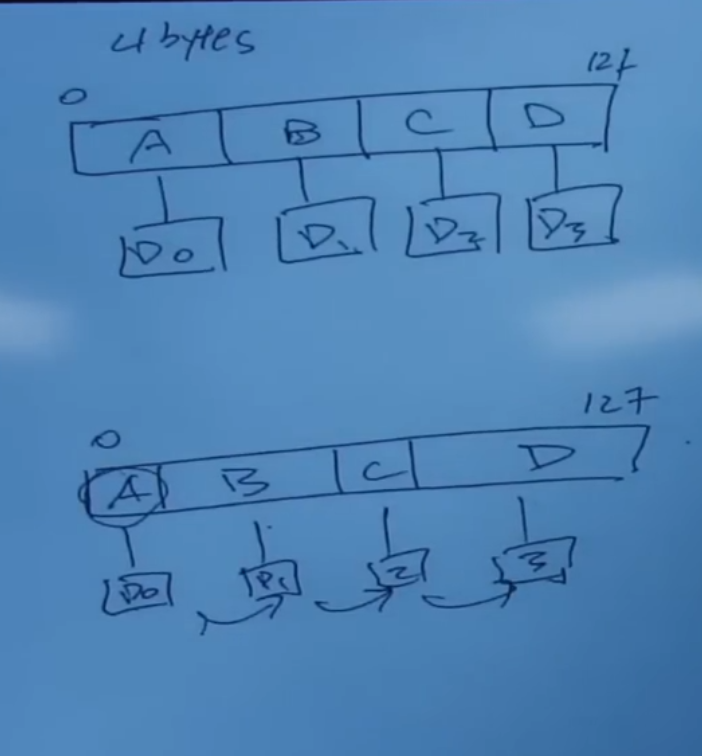 4 bytes
0 127
A B C D
D0 D1 D2 D3
0 127
A B C D
D0 D1 2 3